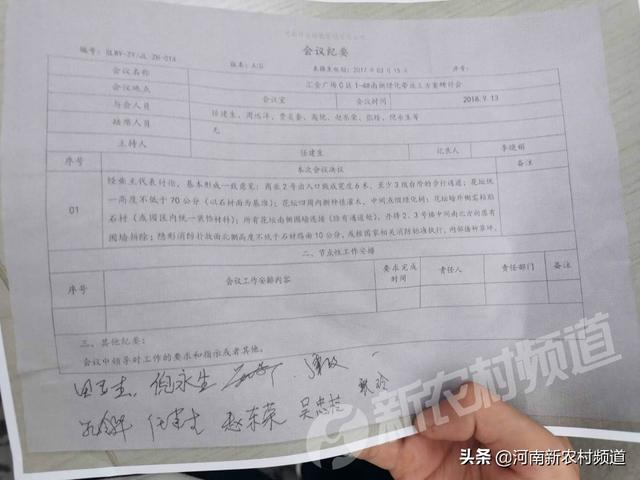 会议纪要
编号: HLWY-ZY/JL ZH-01A 版本: A/0 表格生效期: 2017年03月15日 序号:
会议名称 汇金广场C区1-4#南侧绿化带施工方案研讨会
会议地点 会议室 会议时间 2018.9.13
与会人员 任建生、周远洋、贾
缺席人员 无
主持人 任建生 记录人 李晓娟
序号 本次会议决议 备注
01 经业主代表讨论，基本形成一致意见：商业2号出入口做成宽度6米，至少3级台阶的步行通道；花坛统
一高度不低于70公分（以石材面为基准）；花坛四周内侧种植灌木，中间点缀绿化树；花坛墙外侧需粘贴
石材（或园区内统一装饰材料）；所有花坛南侧围墙连接（除有通道处），办排2、3号楼中间南北方向原有
围墙拆除；隐形消防扑救面北侧高度不低于石材路面10公分，或按国家相关消防标准执行，内部播种草坪。
二、节点性工作安排
序号 会议工作安排内容 要求完成时间 责任人 责任部门 备注
三、其他纪要:
会议中领导对工作的要求和指示或者其他。
倪永生
任建生 赵东荣 吴忠芸
新农村频道
头条 @河南新农村频道